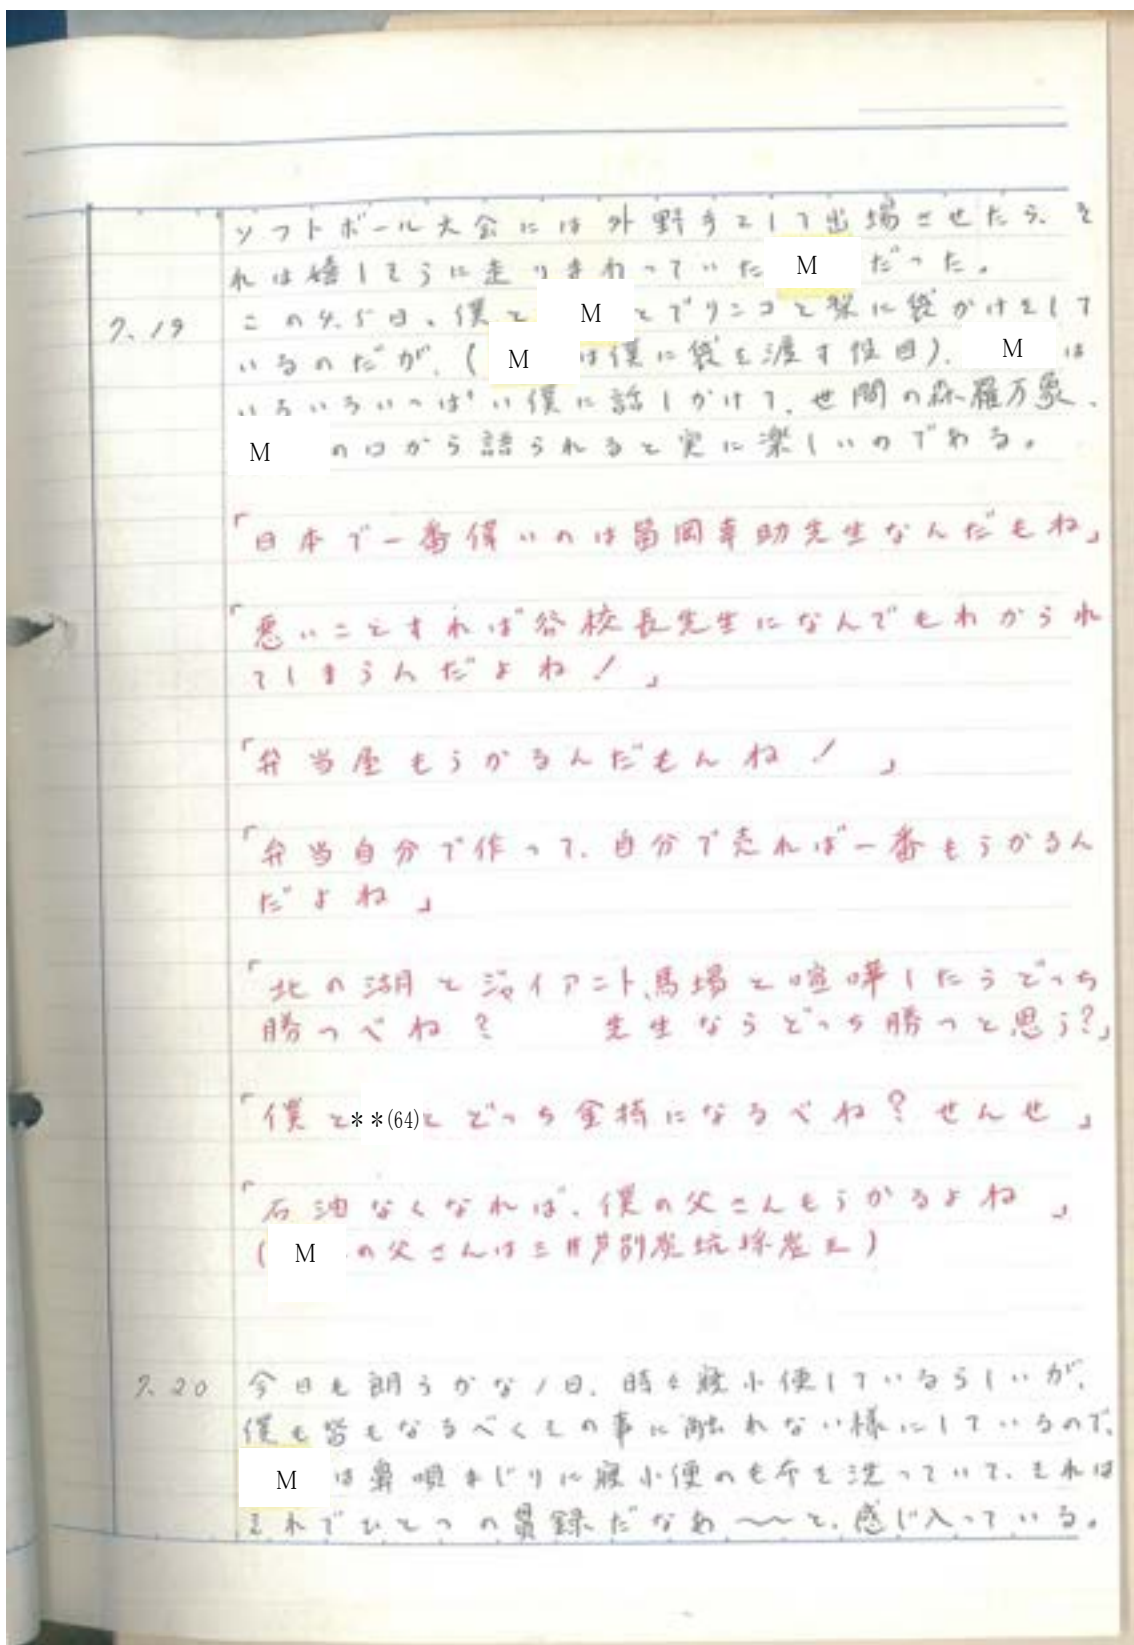 ソフトボール大会には外野手として出場させたら、そ
れは嬉しそうに走りまわっていた M だった。
7.19 この4.5日、僕と M とでリンゴと梨に袋かけをして
いるのだが、( M は僕に袋を渡す役目)、 M は
いろいろいっぱい僕に話しかけて、世間の森羅万象、
M の口から語られると実に楽しいのである。
「日本で一番偉いのは留岡幸助先生なんだもね」
「悪いことすれば谷校長先生になんでもわかられ
てしまうんだよね！」
「弁当屋もうかるんだもんね！」
「弁当自分で作って、自分で売れば一番もうかるん
だよね」
「北の湖とジャイアント、馬場と喧嘩したらどっち
勝つべね？ 先生ならどっち勝つと思う?」
「僕と**(64)とどっち金持になるべね？せんせ」
「石油なくなれば、僕の父さんもうかるよね」
( M の父さんは三井芦別炭坑採炭夫)
7.20 今日も朗らかな1日、時々寝小便しているらしいが、
僕も皆もなるべくその事に触れない様にしているので、
M は鼻唄まじりに寝小便のもふを洗っていて、それは
それでひとつの貫録だなあ〜〜と、感じ入っている。